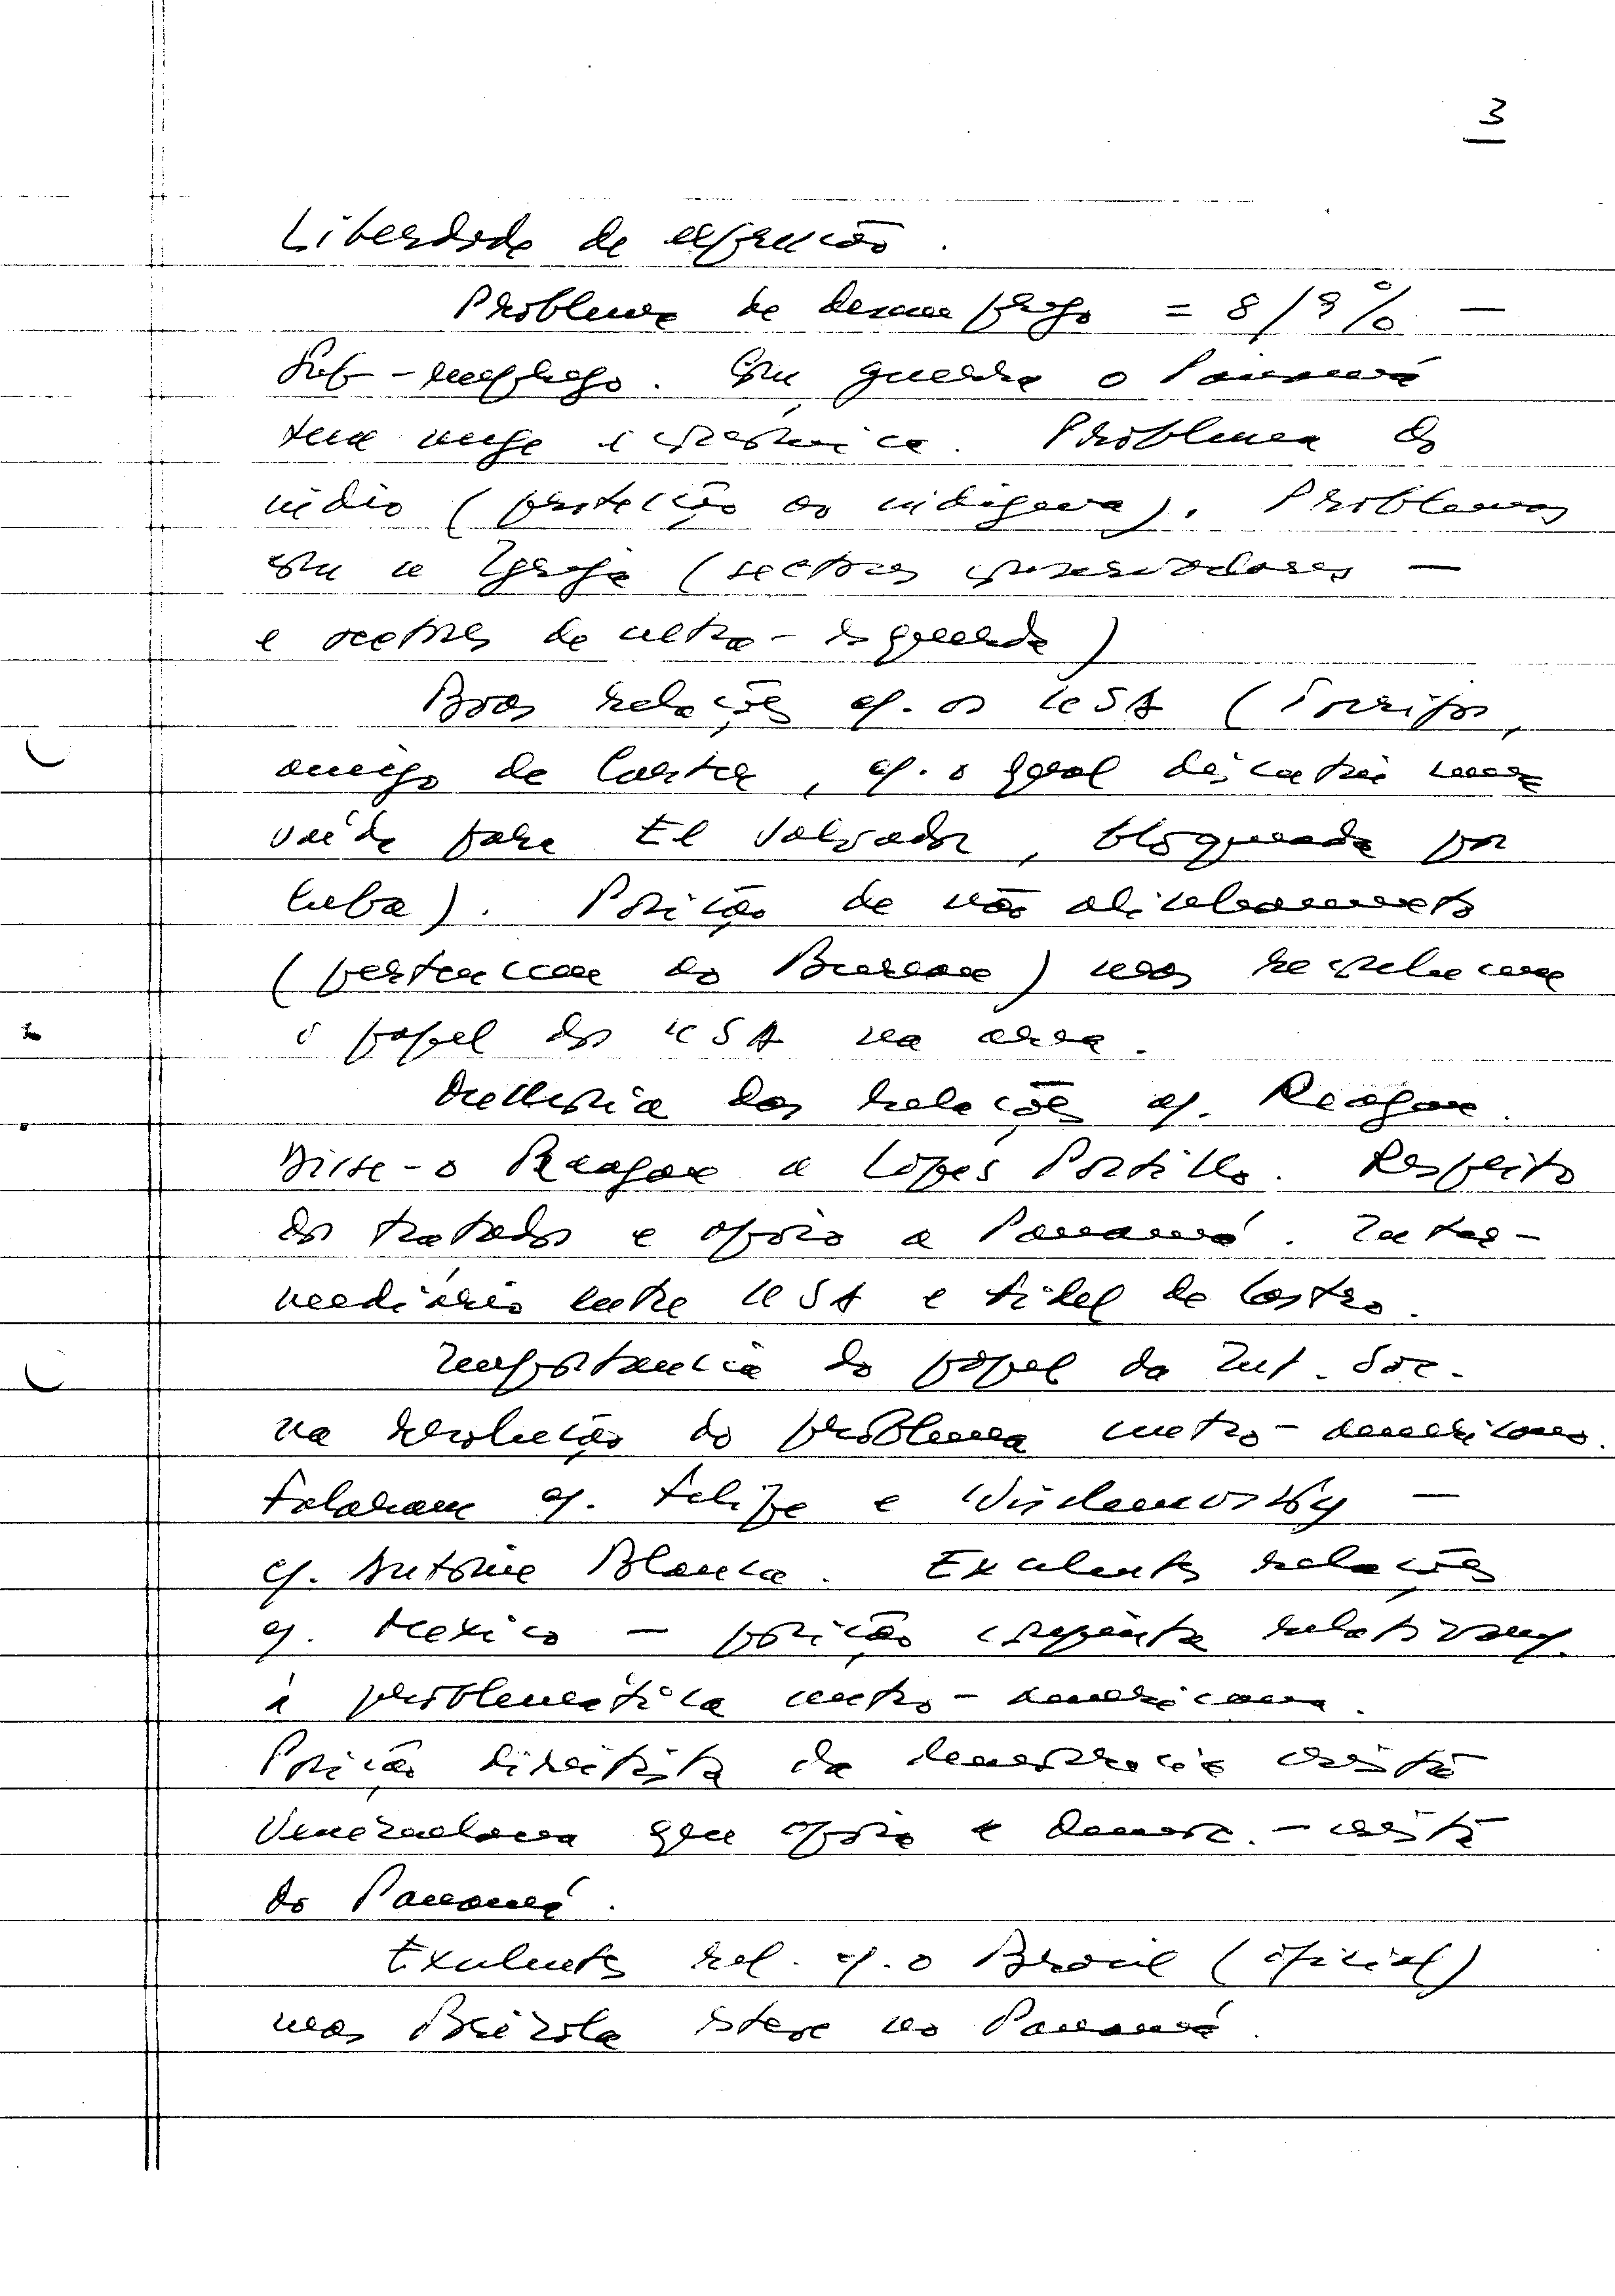 3
Liberdade de expressão.
Problema de desemprego = 8/9% —
Sub-emprego. Em guerra o Panamá
tem auge económico. Problema do
índio (protecção ao indígena). Problemas
com a Igreja (sectores conservadores —
e sectores de ultra-esquerda)
Boas relações c/. os USA (Torrijos,
amigo de Carter, c/. o qual discutiu uma
saída para El Salvador, bloqueada por
Cuba). Posição de não alinhamento
(pertencem ao Bureau) mas reconhecem
o papel dos USA na area.
Melhoria das relações c/. Reagan.
Disse-o Reagan a Lopés Portillo. Respeito
dos tratados e apoio a Panamá. Inter-
mediário entre USA e Fidel de Castro.
Importancia do papel da Int. Soc.
na resolução do problema centro-americano.
Falaram c/. Felipe e Wischnewsky —
c/. Antoine Blanca. Excelentes relações
c/. Mexico — posição conjunta relativam.
à problemática centro-americana.
Posição direitista da democracia cristã
Venezuelana que apoia a democ.-cristã
do Panamá.
Excelentes rel. c/. o Brasil (oficial)
mas Brizola esteve no Panamá.